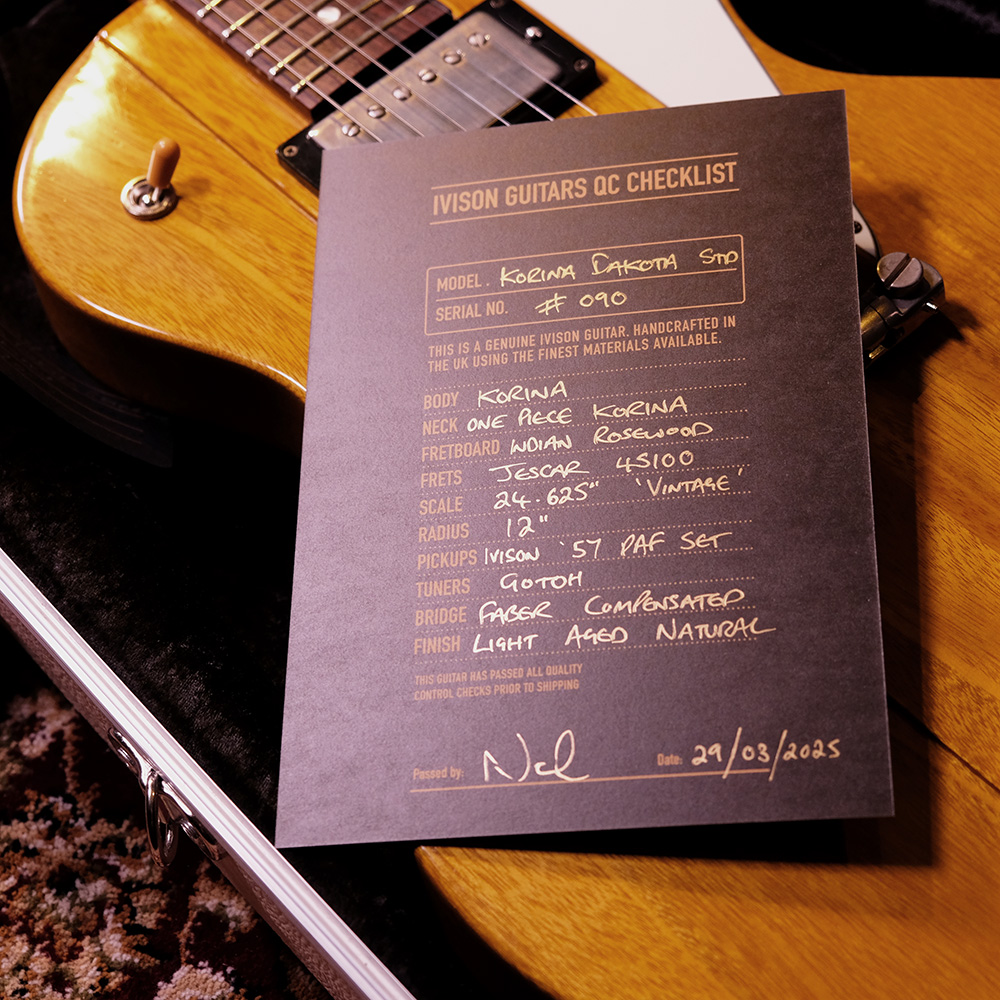 IVISON GUITARS QC CHECKLIST
MODEL. KORINA DAKOTA STD
SERIAL NO. # 090
THIS IS A GENUINE IVISON GUITAR. HANDCRAFTED IN
THE UK USING THE FINEST MATERIALS AVAILABLE.
BODY KORINA
NECK ONE PIECE KORINA
FRETBOARD INDIAN ROSEWOOD
FRETS JESCAR 45100
SCALE 24.625" 'VINTAGE'
RADIUS 12"
PICKUPS IVISON '57 PAF SET
TUNERS GOTOH
BRIDGE FABER COMPENSATED
FINISH LIGHT AGED NATURAL
THIS GUITAR HAS PASSED ALL QUALITY
CONTROL CHECKS PRIOR TO SHIPPING
Passed by: Date: 29/03/2025